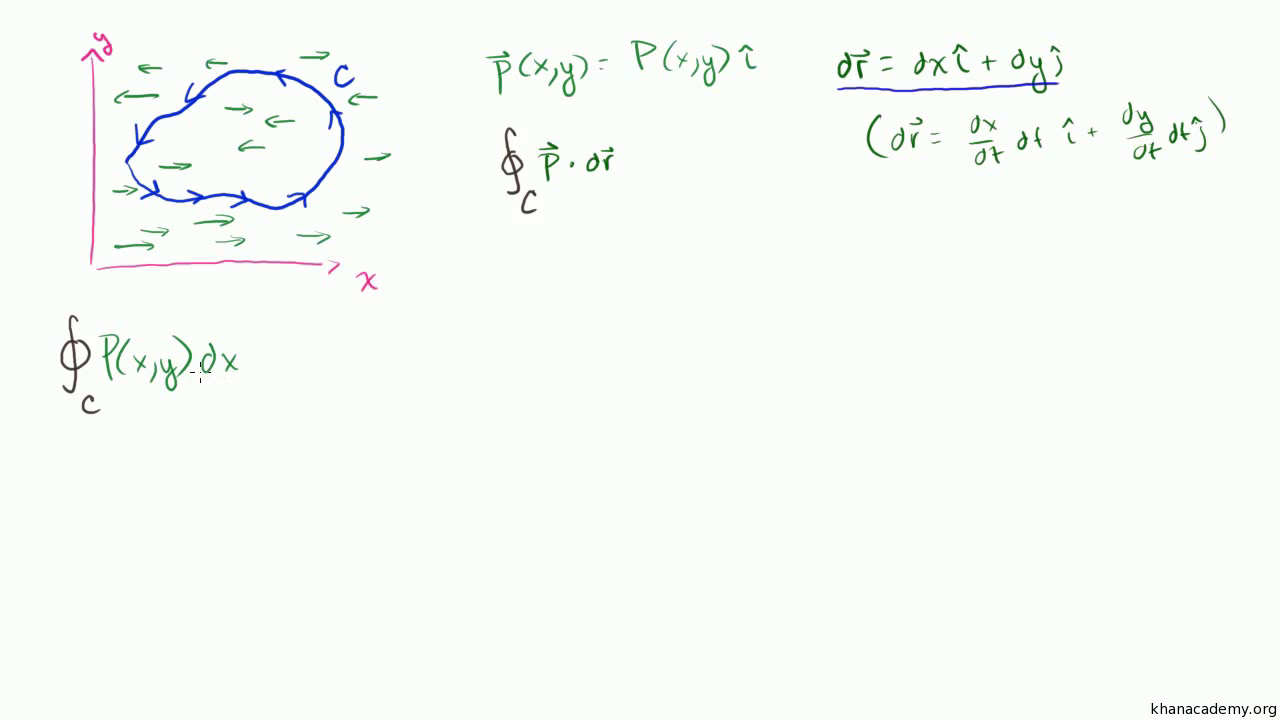 y
C
x
p⃗(x,y) = P(x,y) î
∮
C
p⃗ · dr⃗
dr⃗ = dx î + dy ĵ
(dr⃗ = dx/dt dt î + dy/dt dt ĵ)
∮ P(x,y) dx
C
khanacademy.org